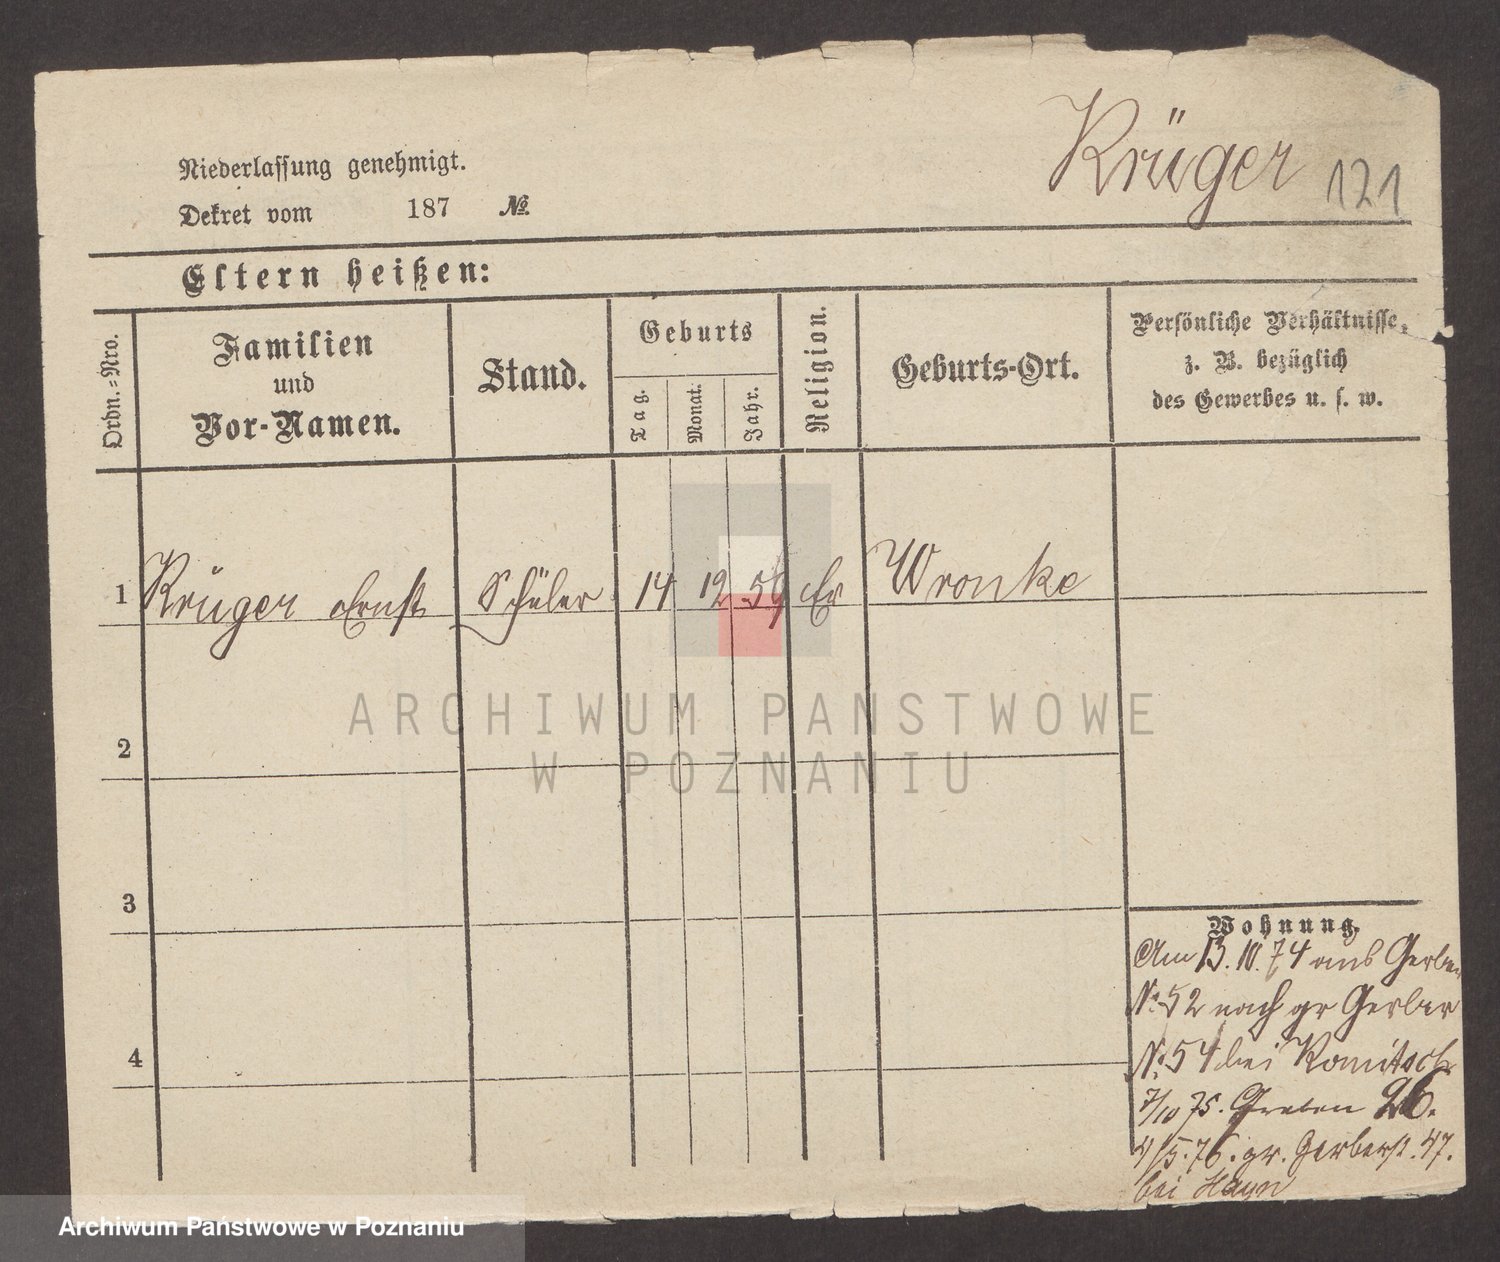 Krüger 121
Niederlassung genehmigt.
Dekret vom 187 No.
Eltern heißen:
Ordn.=Nro.
Familien
und
Vor-Namen.
Stand.
Geburts
Tag.
Monat.
Jahr.
Religion.
Geburts-Ort.
Persönliche Verhältnisse,
z. B. bezüglich
des Gewerbes u. s. w.
1 Krüger Ernst Schüler 14 12 59 Ev Wronke
2
3
4
Wohnung.
Am 13.10.74 aus Gerber
No. 52 nach gr Gerber
No. 54 bei
7/10 75. Graben 26.
4/5.76. gr. Gerberst. 47.
bei Hayn
ARCHIWUM PAŃSTWOWE
W POZNANIU
Archiwum Państwowe w Poznaniu